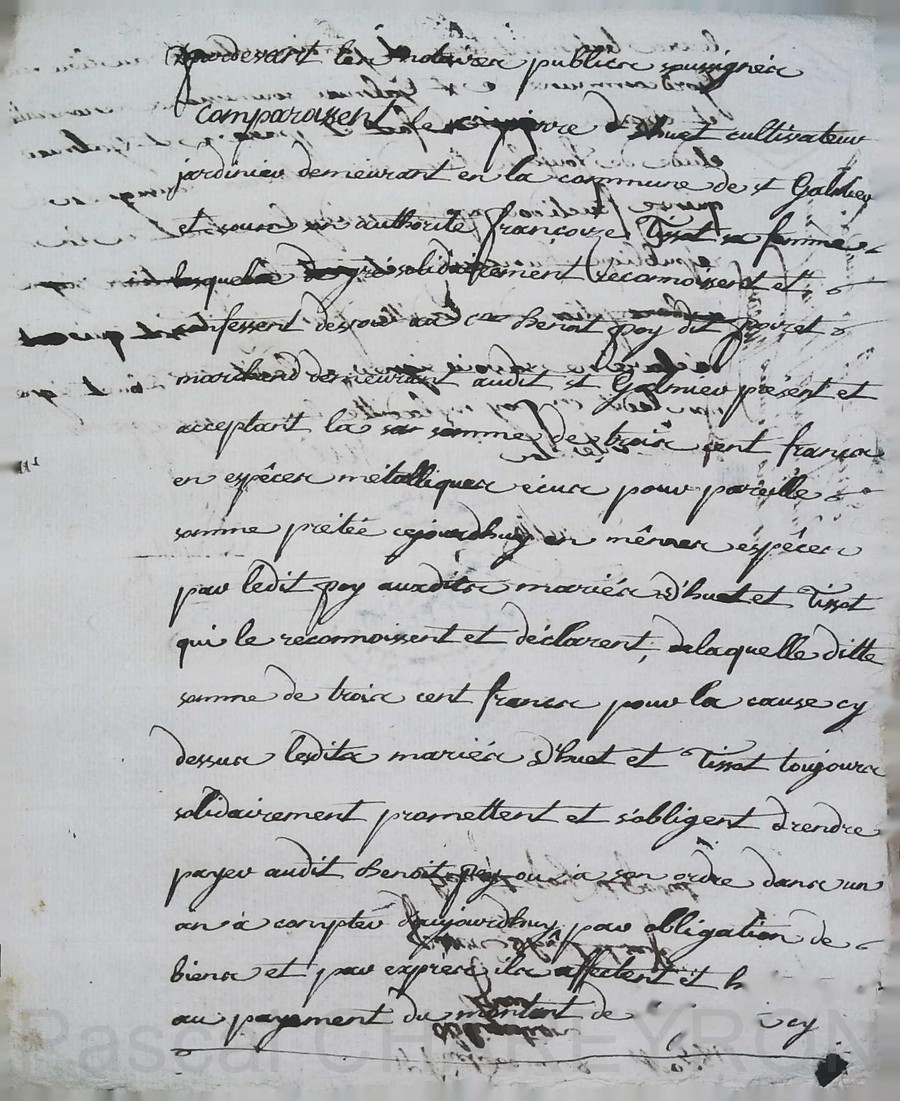 pardevant les notaires publics soussignés
comparaissent le cn pierre d'huet cultivateur
jardinier demeurant en la commune de st Galmier
et sous son authorité françoise Tissot sa femme
lesquels de gré solidairement reconnoissent et
confessent desvoir au cen benoit poy dit poiret
marchand demeurant audit st Galmier présent et
acceptant la somme de trois cent francs
en espêces métalliques écus pour pareille
somme prétée cejourdhuy en mêmes espêces
par ledit poy auxdits mariés d'huet et Tissot
qui le reconnoissent et déclarent, delaquelle ditte
somme de trois cent francs pour la cause cy
dessus lesdits mariés d'huet et Tissot toujours
solidairement promettent et s'obligent d rendre
payer audit benoit poy ou à son ordre dans un
an à compter d'aujourdhuy, par obligation de
biens et par exprès ils affectent et h
au payement du montant de cy
Pascal CHAREYRON